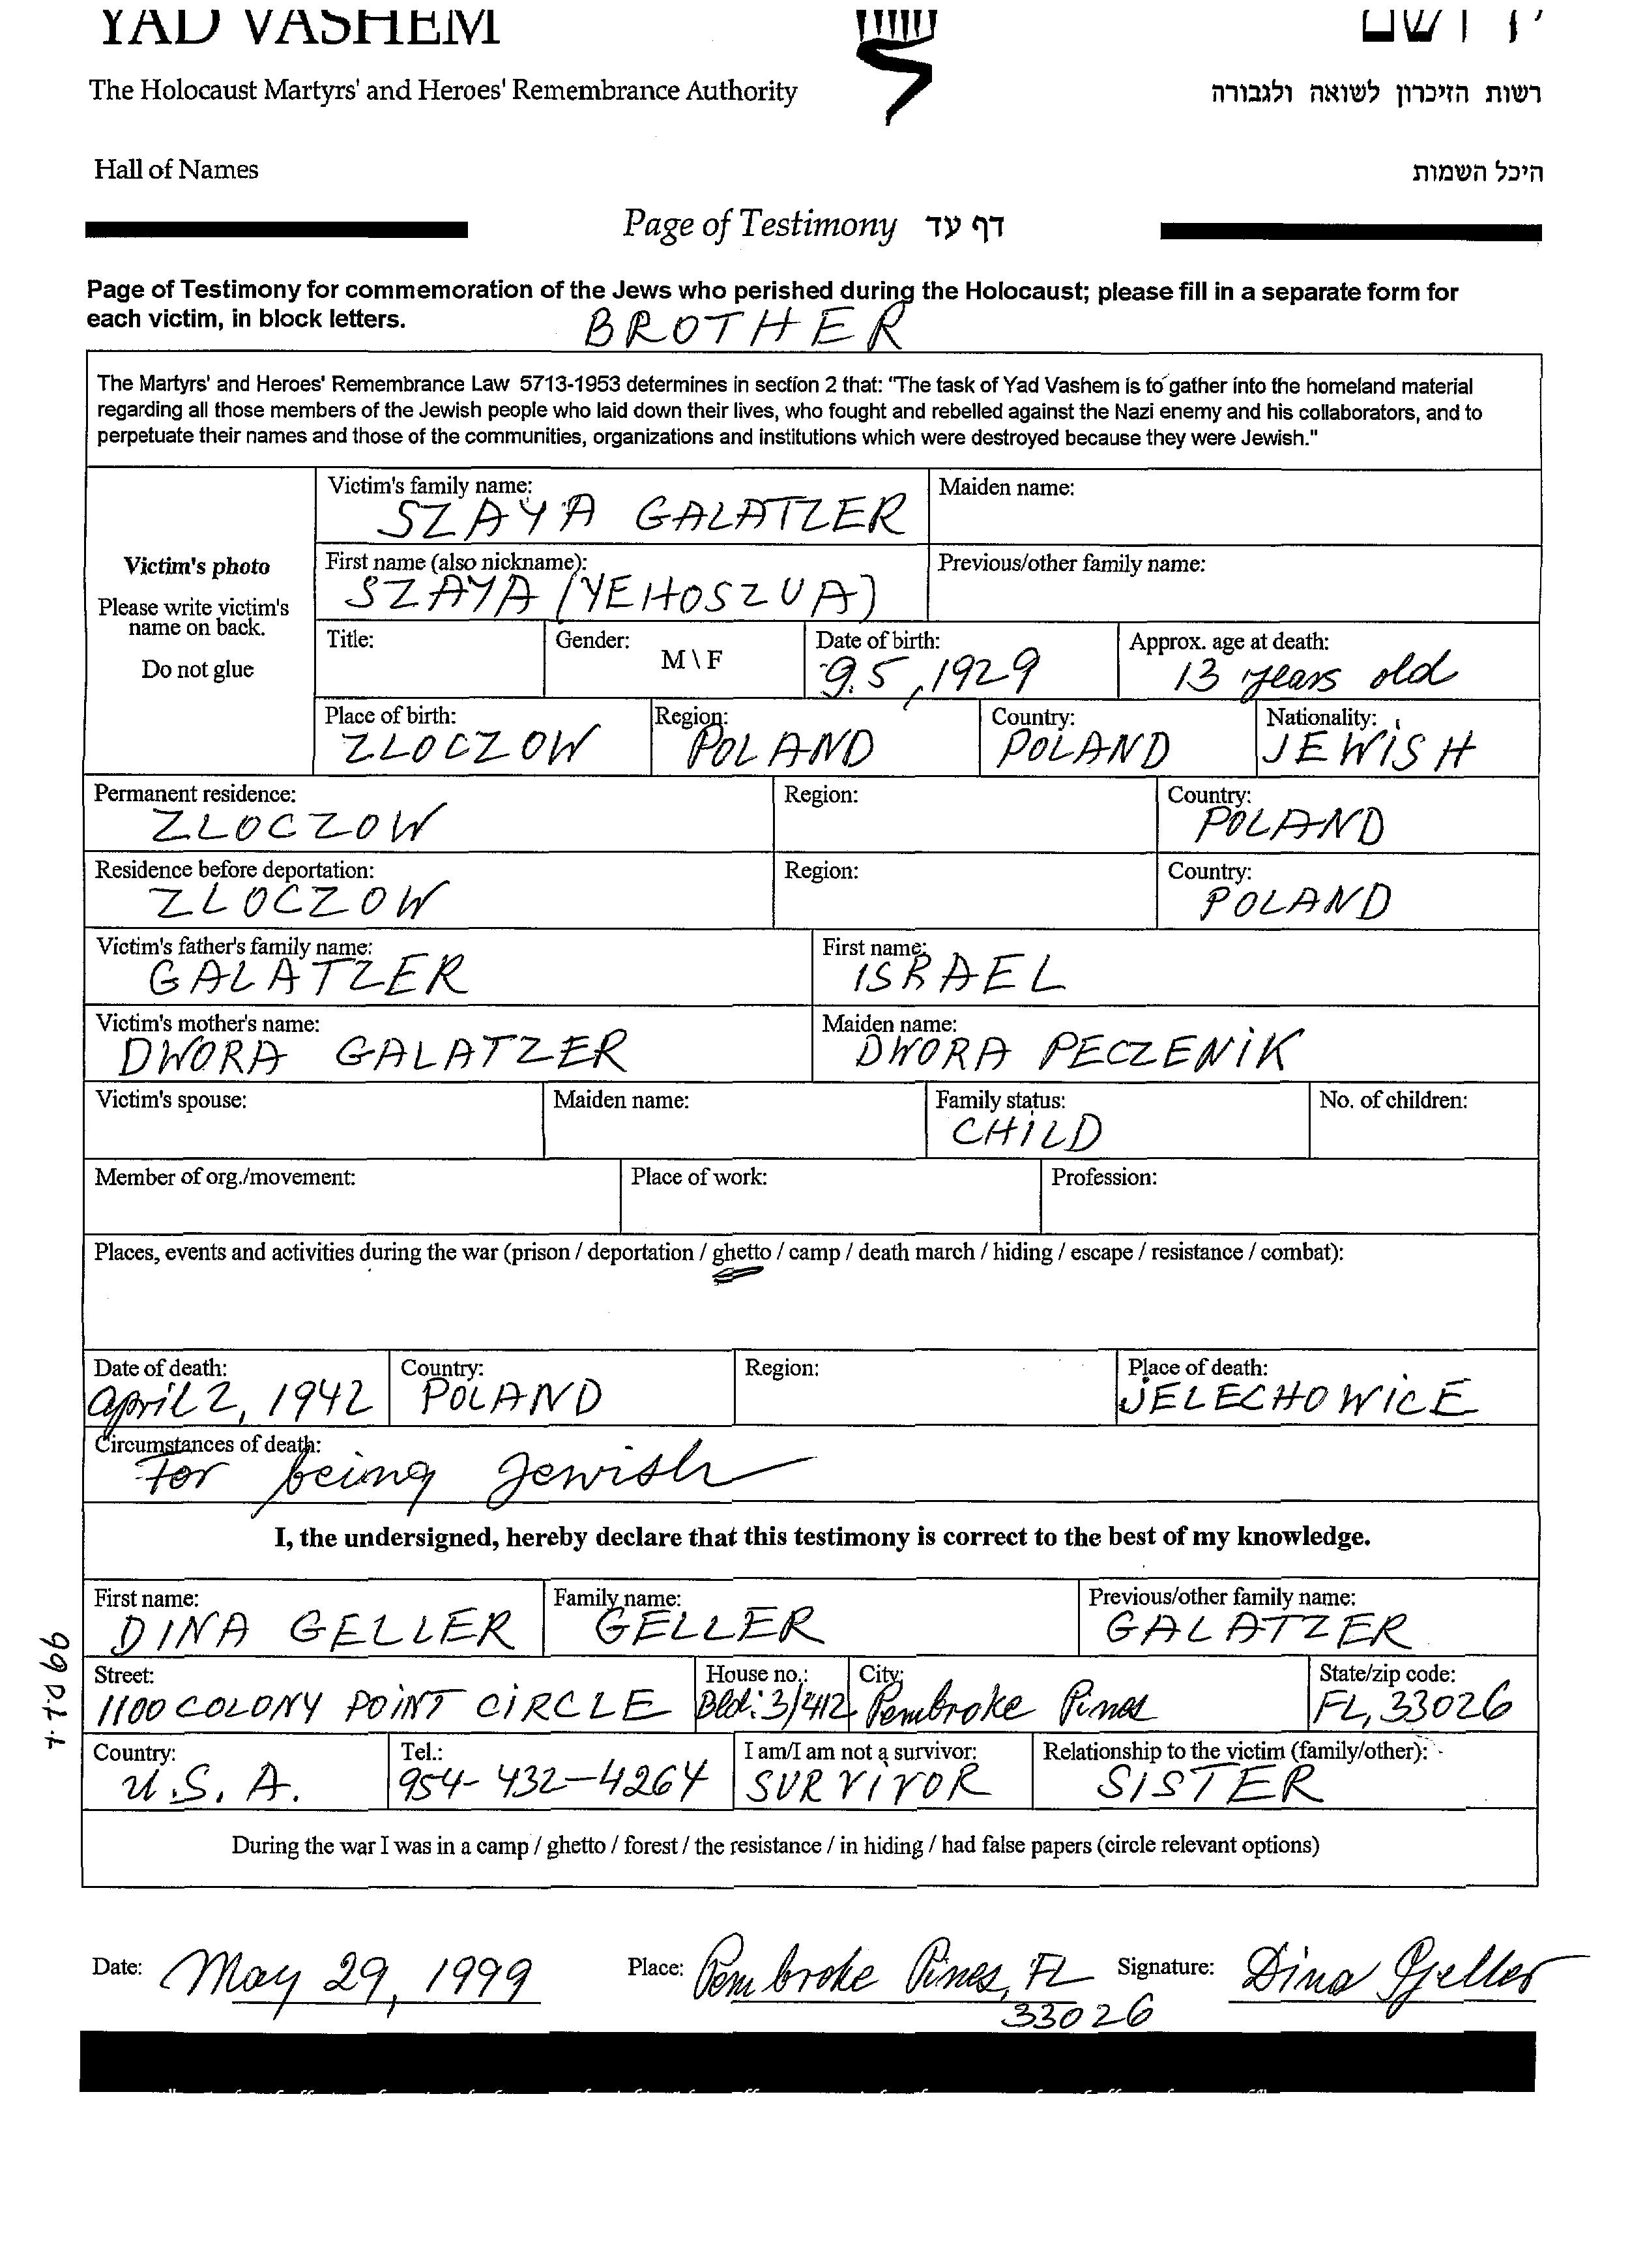 YAD VASHEM
יד ושם
The Holocaust Martyrs' and Heroes' Remembrance Authority
רשות הזיכרון לשואה ולגבורה
Hall of Names
היכל השמות
Page of Testimony דף עד
Page of Testimony for commemoration of the Jews who perished during the Holocaust; please fill in a separate form for
each victim, in block letters.
BROTHER
The Martyrs' and Heroes' Remembrance Law 5713-1953 determines in section 2 that: "The task of Yad Vashem is to gather into the homeland material
regarding all those members of the Jewish people who laid down their lives, who fought and rebelled against the Nazi enemy and his collaborators, and to
perpetuate their names and those of the communities, organizations and institutions which were destroyed because they were Jewish."
Victim's photo
Please write victim's
name on back.
Do not glue
Victim's family name: Maiden name:
SZAYA GALATZER
First name (also nickname): Previous/other family name:
SZAYA (YEHOSZUA)
Title: Gender: M\F Date of birth: Approx. age at death:
9.5,1929 13 years old
Place of birth: Region: Country: Nationality:
ZLOCZOW POLAND POLAND JEWISH
Permanent residence: Region: Country:
ZLOCZOW POLAND
Residence before deportation: Region: Country:
ZLOCZOW POLAND
Victim's father's family name: First name:
GALATZER ISRAEL
Victim's mother's name: Maiden name:
DWORA GALATZER DWORA PECZENIK
Victim's spouse: Maiden name: Family status: No. of children:
CHILD
Member of org./movement: Place of work: Profession:
Places, events and activities during the war (prison / deportation / ghetto / camp / death march / hiding / escape / resistance / combat):
Date of death: Country: Region: Place of death:
april 2, 1942 POLAND JELECHOWICE
Circumstances of death:
For being Jewish
I, the undersigned, hereby declare that this testimony is correct to the best of my knowledge.
First name: Family name: Previous/other family name:
DINA GELLER GELLER GALATZER
Street: House no.: City: State/zip code:
1100 COLONY POINT CIRCLE Bld: 3/412 Pembroke Pines FL, 33026
Country: Tel.: I am/I am not a survivor: Relationship to the victim (family/other):
U.S.A. 954-432-4264 SURVIVOR SISTER
During the war I was in a camp / ghetto / forest / the resistance / in hiding / had false papers (circle relevant options)
Date: May 29, 1999 Place: Pembroke Pines, FL Signature: Dina Geller
33026